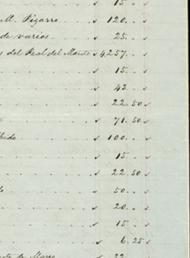 " 15. "
M. Pizarro " 120. "
de varios " 25. "
del Real del Monte " 4257. "
" 15. "
" 43. "
" 22.50 "
" 71.50 "
" 100. "
" 15. "
" 22.50 "
" 50. "
" 20. "
" 15. "
" 6.25 "